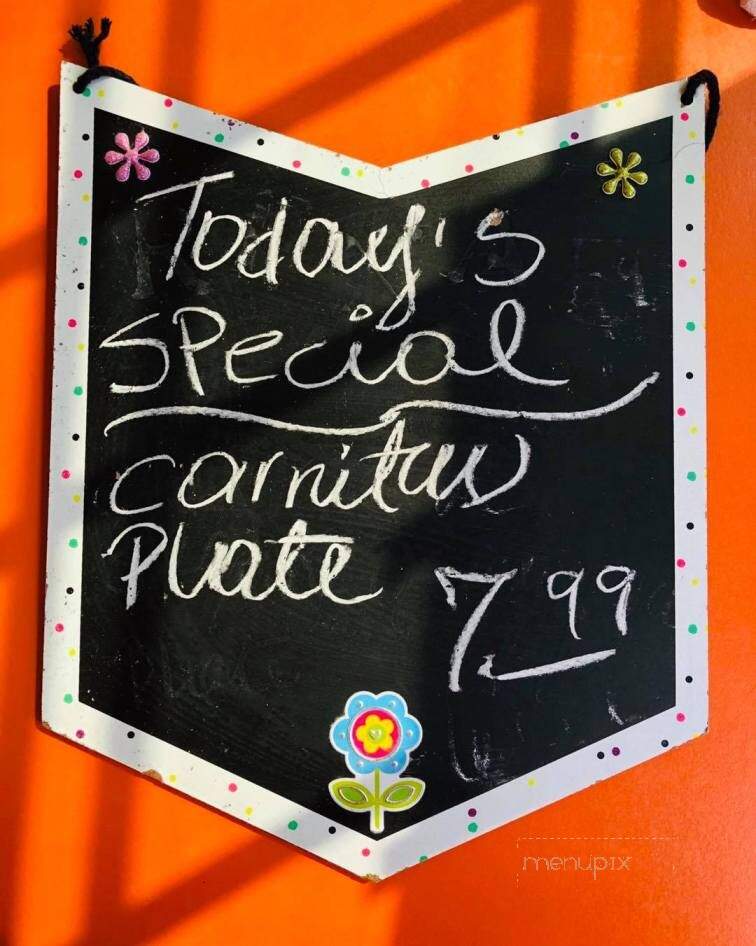 Today's
Special
Carnitas
Plate
7.99
menupix